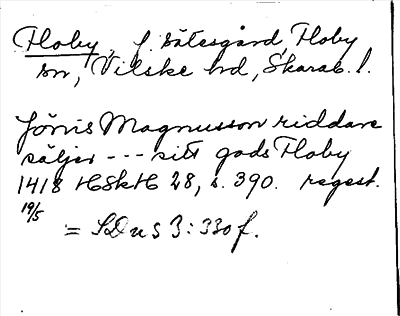 Floby, f. sätesgård, Floby
sn, Vilske hd, Skarab. l.
Jönis Magnusson riddare
säljer --- sitt gods Floby
1418 HSkH 28, s. 390. regest.
19/5
= SDns 3:330f.